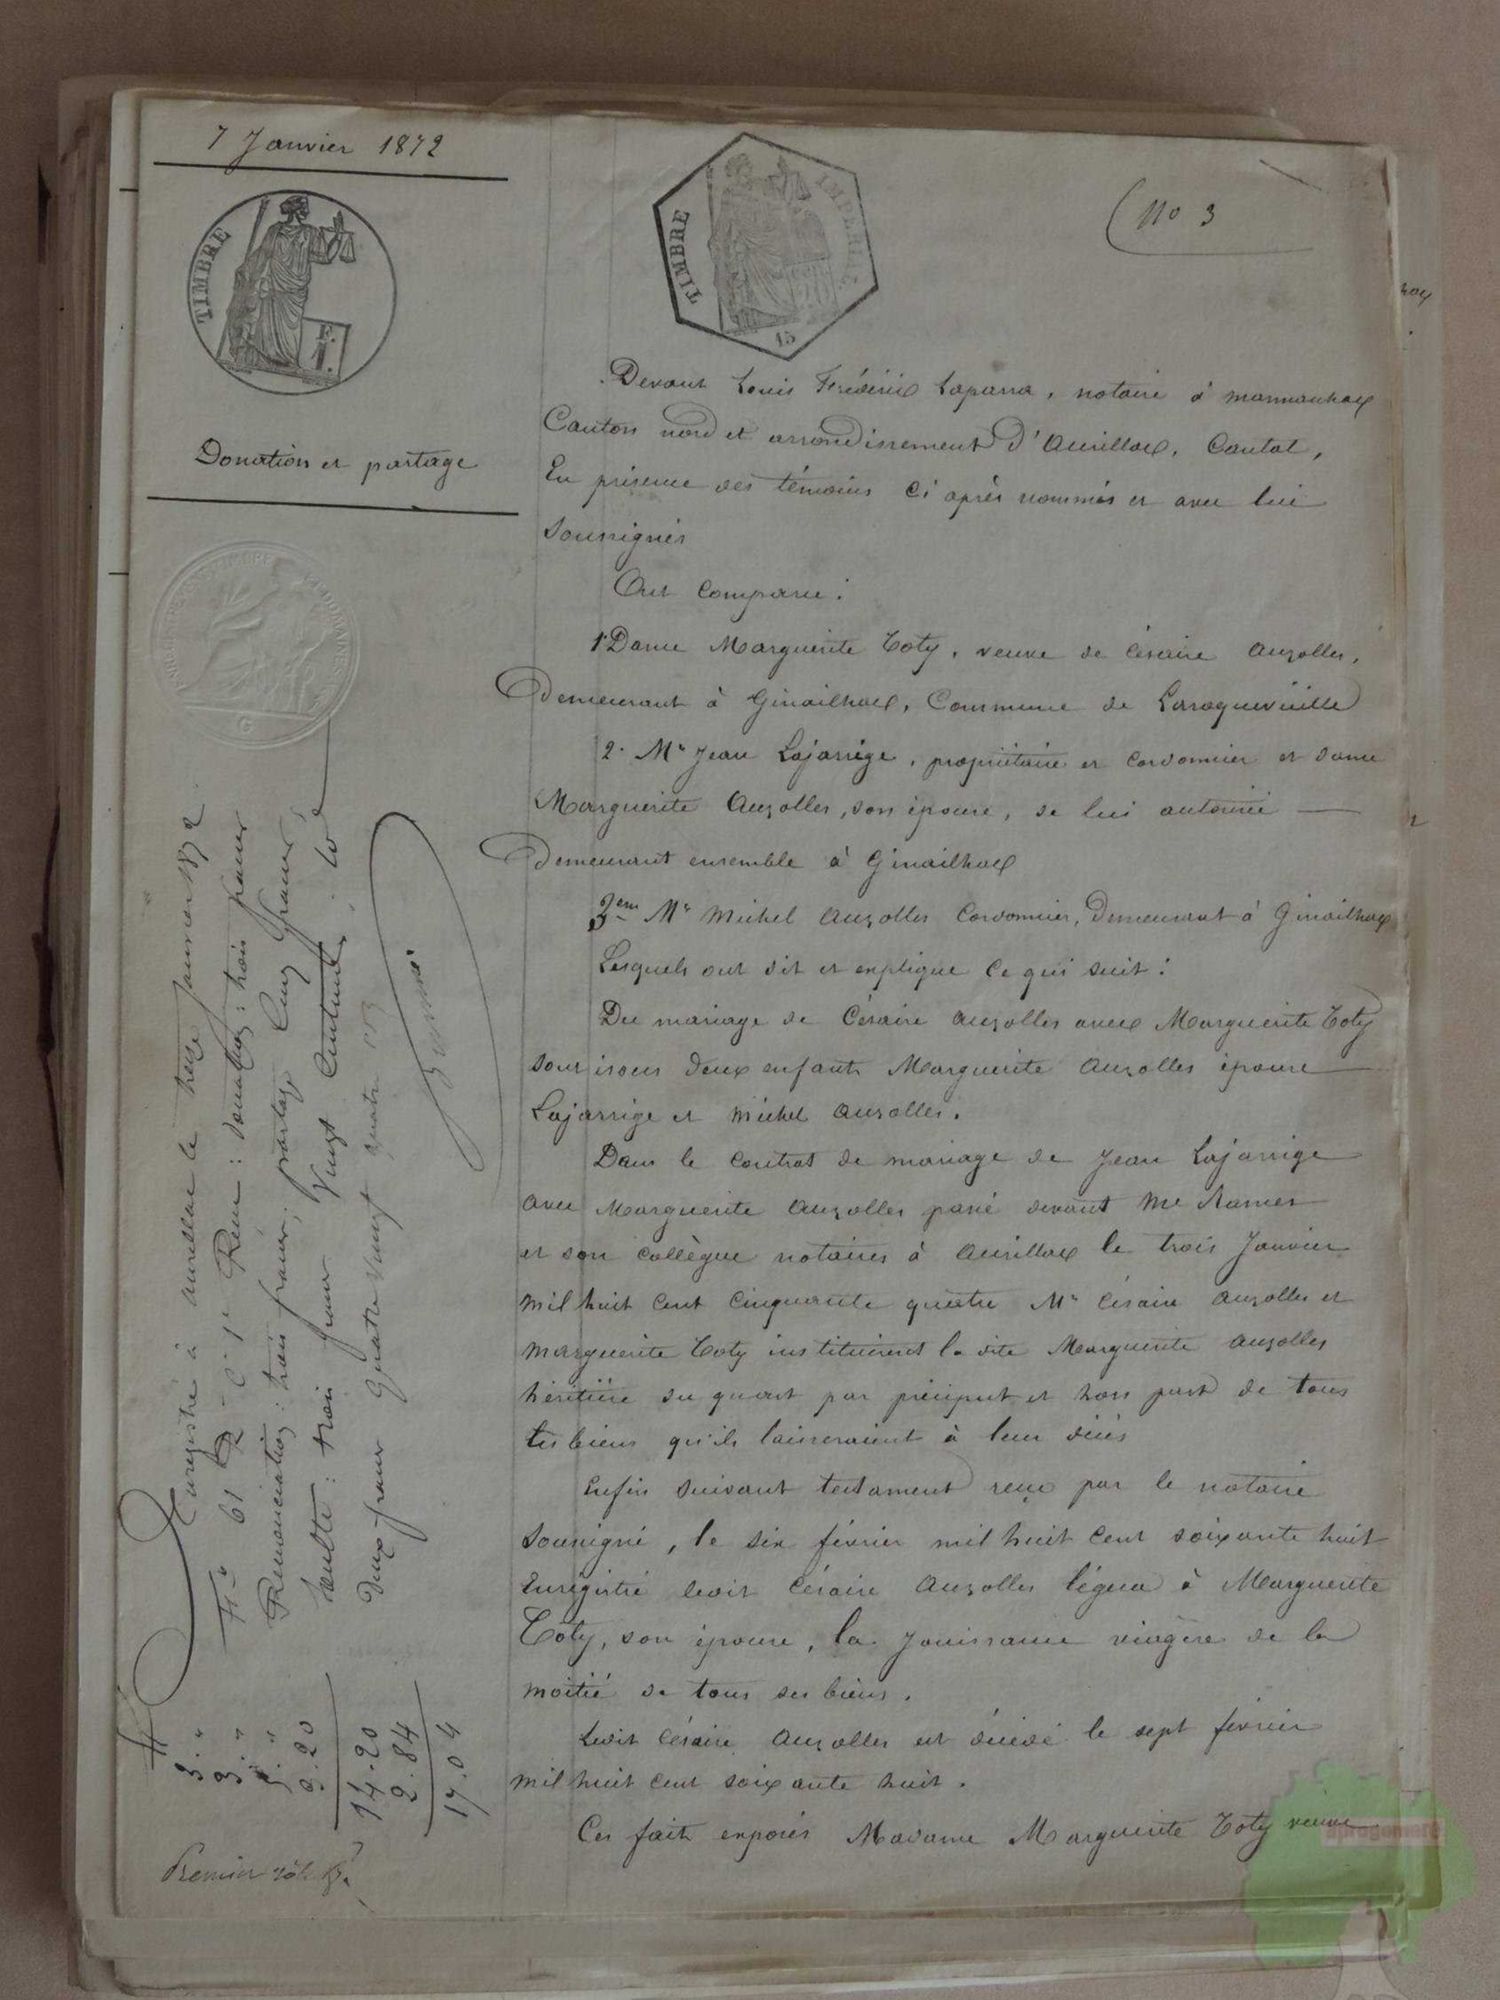 7 Janvier 1872
TIMBRE
F.
1.
TIMBRE IMPERIAL
15
No 3
Donation et partage
Devant Louis Frédéric Laparra, notaire à Marmanhac
Canton nord et arrondissement d'Aurillac, Cantal,
En présence des témoins ci après nommés et avec lui
soussignés
Ont comparu :
1° Dame Marguerite Toty, veuve de Césaire Auzolles,
Demeurant à Ginailhac, Commune de Laroquevieille
2° Mr Jean Lajarrige, propriétaire et cordonnier et dame
Marguerite Auzolles, son épouse, de lui autorisée
Demeurant ensemble à Ginailhac
3eme Mr Michel Auzolles Cordonnier, Demeurant à Ginailhac
Lesquels ont dit et expliqué ce qui suit :
Du mariage de Césaire Auzolles avec Marguerite Toty
sont issus deux enfants Marguerite Auzolles épouse
Lajarrige et Michel Auzolles.
Dans le contrat de mariage de Jean Lajarrige
avec Marguerite Auzolles passé devant Me Rames
et son collègue notaires à Aurillac le trois Janvier
mil huit cent cinquante quatre Mr Césaire Auzolles et
Marguerite Toty instituèrent la dite Marguerite Auzolles
héritière du quart par préciput et hors part de tous
les biens qu'ils laisseraient à leur décès
Enfin suivant testament reçu par le notaire
soussigné, le six février mil huit cent soixante huit
Enregistré ledit Césaire Auzolles légua à Marguerite
Toty, son épouse, la jouissance viagère de la
moitié de tous ses biens.
Ledit Césaire Auzolles est décédé le sept février
mil huit cent soixante huit.
Ces faits exposés Madame Marguerite Toty veuve
Enregistré à Aurillac le treize Janvier 1872
F° 61 C. 1e Reçu : donation : trois francs
Renonciation : trois francs ; partage cinq francs
Soulte : trois francs Vingt Centimes
Deux francs quatre vingt quatre
3. "
3. "
5. "
3.20
14.20
2.84
17.04
Premier rôle